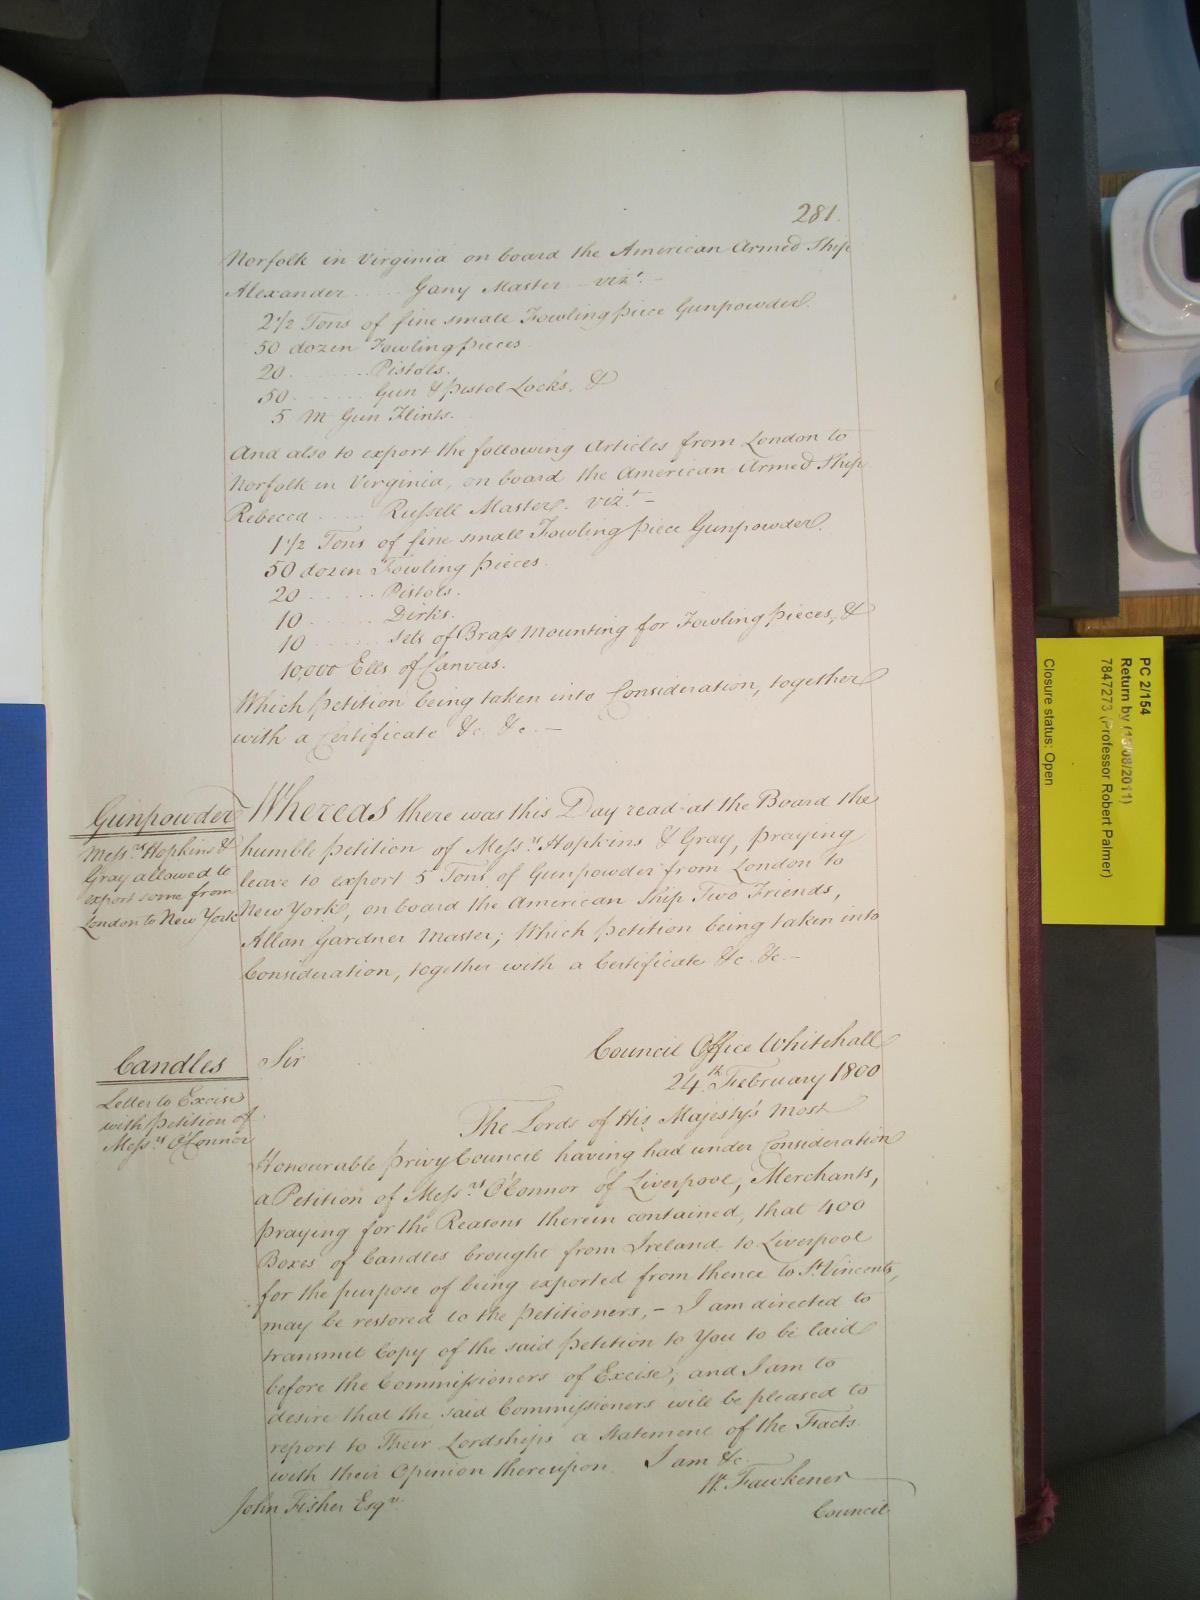 281.
Norfolk in Virginia on board the American Armed Ship
Alexander ..... Gany Master - vizt. -
2 1/2 Tons of fine small Fowling piece Gunpowder.
50 dozen Fowling pieces
20 ........ Pistols.
50 ........ Gun & pistol Locks. &
5 M Gun Flints.
And also to export the following Articles from London to
Norfolk in Virginia, on board the American Armed Ship
Rebecca ..... Russell Master. vizt. -
1 1/2 Tons of fine small Fowling piece Gunpowder.
50 dozen Fowling pieces.
20 ....... Pistols.
10 ....... Dirks.
10 ....... sets of Brass Mounting for Fowling pieces, &
10,000 Ells of Canvas.
Which petition being taken into Consideration, together
with a Certificate &c. &c. -
Gunpowder
Messrs. Hopkins &
Gray allowed to
export some from
London to New York
Whereas there was this Day read at the Board the
humble petition of Messrs. Hopkins & Gray, praying
leave to export 5 Tons of Gunpowder from London to
New York, on board the American Ship Two Friends,
Allan Gardner Master; Which petition being taken into
Consideration, together with a Certificate &c. &c. -
Candles
Letter to Excise
with petition of
Messrs. O'Connor
Sir
Council Office Whitehall
24th. February 1800
The Lords of His Majesty's most
Honourable privy Council having had under Consideration
a Petition of Messrs. O'Connor of Liverpool, Merchants,
praying for the Reasons therein contained, that 400
Boxes of Candles brought from Ireland to Liverpool
for the purpose of being exported from thence to St. Vincents,
may be restored to the petitioners, - I am directed to
transmit Copy of the said petition to You to be laid
before the Commissioners of Excise; and I am to
desire that the said Commissioners will be pleased to
report to Their Lordships a Statement of the Facts
with their Opinion thereupon. I am &c.
W. Fawkener
John Fisher Esqr.
Council
PC 2/154
Return by (13/08/2011)
7847273 (Professor Robert Palmer)
Closure status: Open